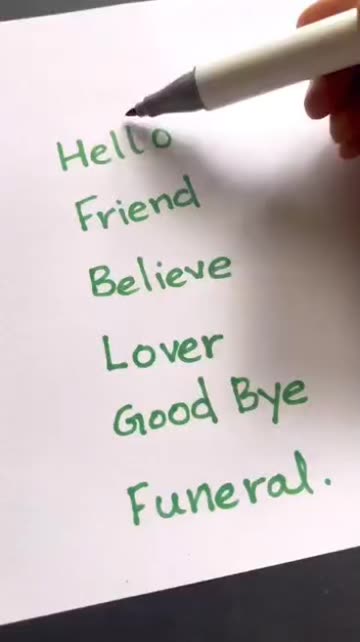 Hello
Friend
Believe
Lover
Good Bye
Funeral.